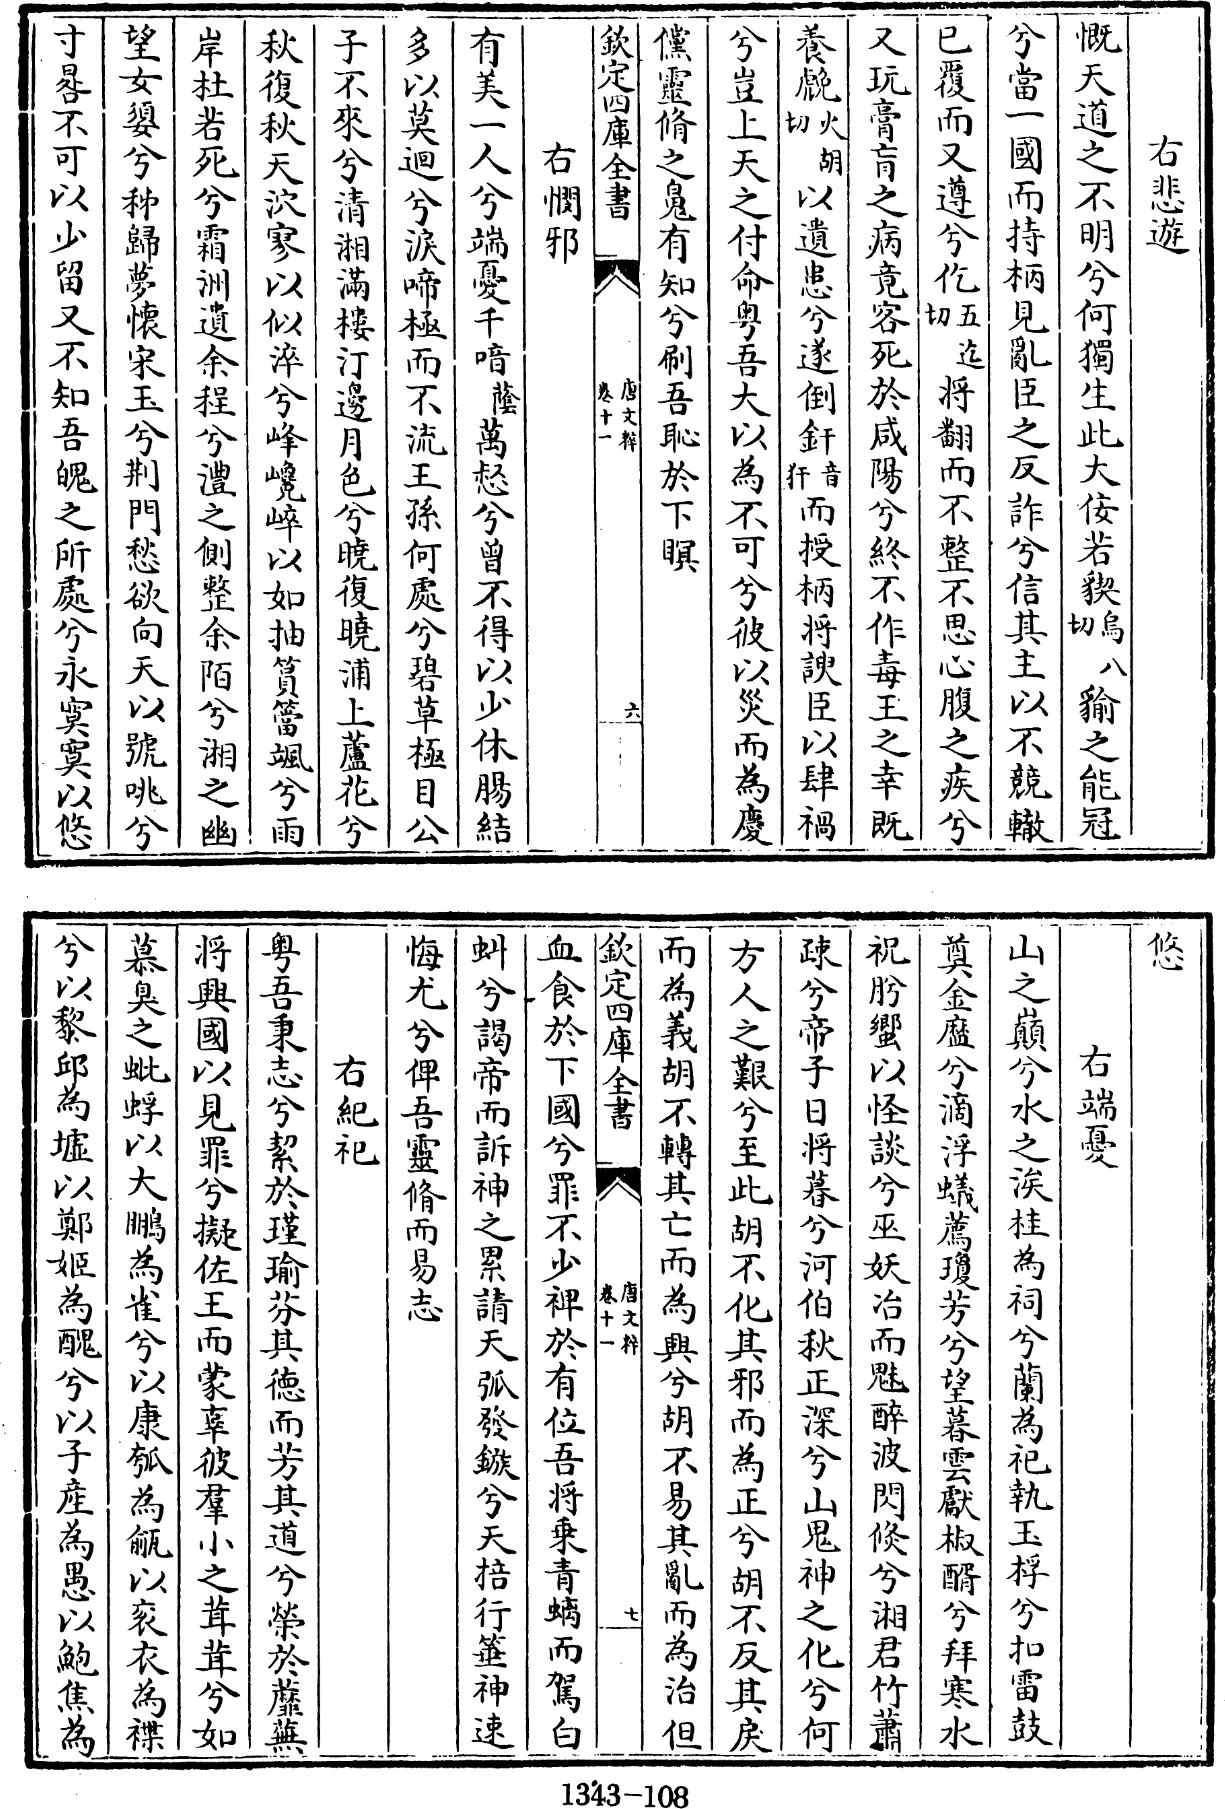 右悲遊
慨天道之不明兮何獨生此大佞若貏烏八切貐之能冠
兮當一國而持柄見亂臣之反詐兮信其主以不競轍
已覆而又遵兮仡五迄切將翻而不整不思心腹之疾兮
又玩膏肓之病竟客死於咸陽兮終不作毒王之幸既
養虤火胡切以遺患兮遂倒釬音犴而授柄將諛臣以肆禍
兮豈上天之付命粤吾大以為不可兮彼以災而為慶
儻靈脩之䰟有知兮刷吾恥於下瞑
右憫邪
欽定四庫全書
唐文粹
卷十一
六
有美一人兮端憂千喑蔭萬愁兮曾不得以少休腸結
多以莫迴兮淚啼極而不流王孫何處兮碧草極目公
子不來兮清湘滿樓汀邊月色兮曉復曉浦上蘆花兮
秋復秋天泬寥以似淬兮峰巉崪以如抽篔簹颯兮雨
岸杜若死兮霜洲遺余程兮澧之側整余陌兮湘之幽
望女嬃兮秭歸夢懷宋玉兮荆門愁欲向天以號咷兮
寸晷不可以少留又不知吾魄之所處兮永寞寞以悠
悠
右端憂
山之巔兮水之涘桂為祠兮蘭為祀執玉桴兮扣雷鼓
奠金䀋兮滴浮蟻薦瓊芳兮望暮雲獻椒醑兮拜寒水
祝肹蠁以怪談兮巫妖冶而魅醉波閃倏兮湘君竹蕭
疎兮帝子日將暮兮河伯秋正深兮山鬼神之化兮何
方人之艱兮至此胡不化其邪而為正兮胡不反其戾
而為義胡不轉其亡而為興兮胡不易其亂而為治但
欽定四庫全書
唐文粹
卷十一
七
血食於下國兮罪不少裨於有位吾將乘青螭而駕白
虯兮謁帝而訴神之累請天弧發鏃兮天掊行箠神速
悔尤兮俾吾靈脩而易志
右紀祀
粤吾秉志兮絜於瑾瑜芬其德而芳其道兮榮於蘼蕪
將興國以見罪兮擬佐王而蒙辜彼羣小之茸茸兮如
慕臭之蚍蜉以大鵬為雀兮以康瓠為㼽以衮衣為褋
兮以黎邱為墟以鄭姬為醜兮以子產為愚以鮑焦為
1343-108